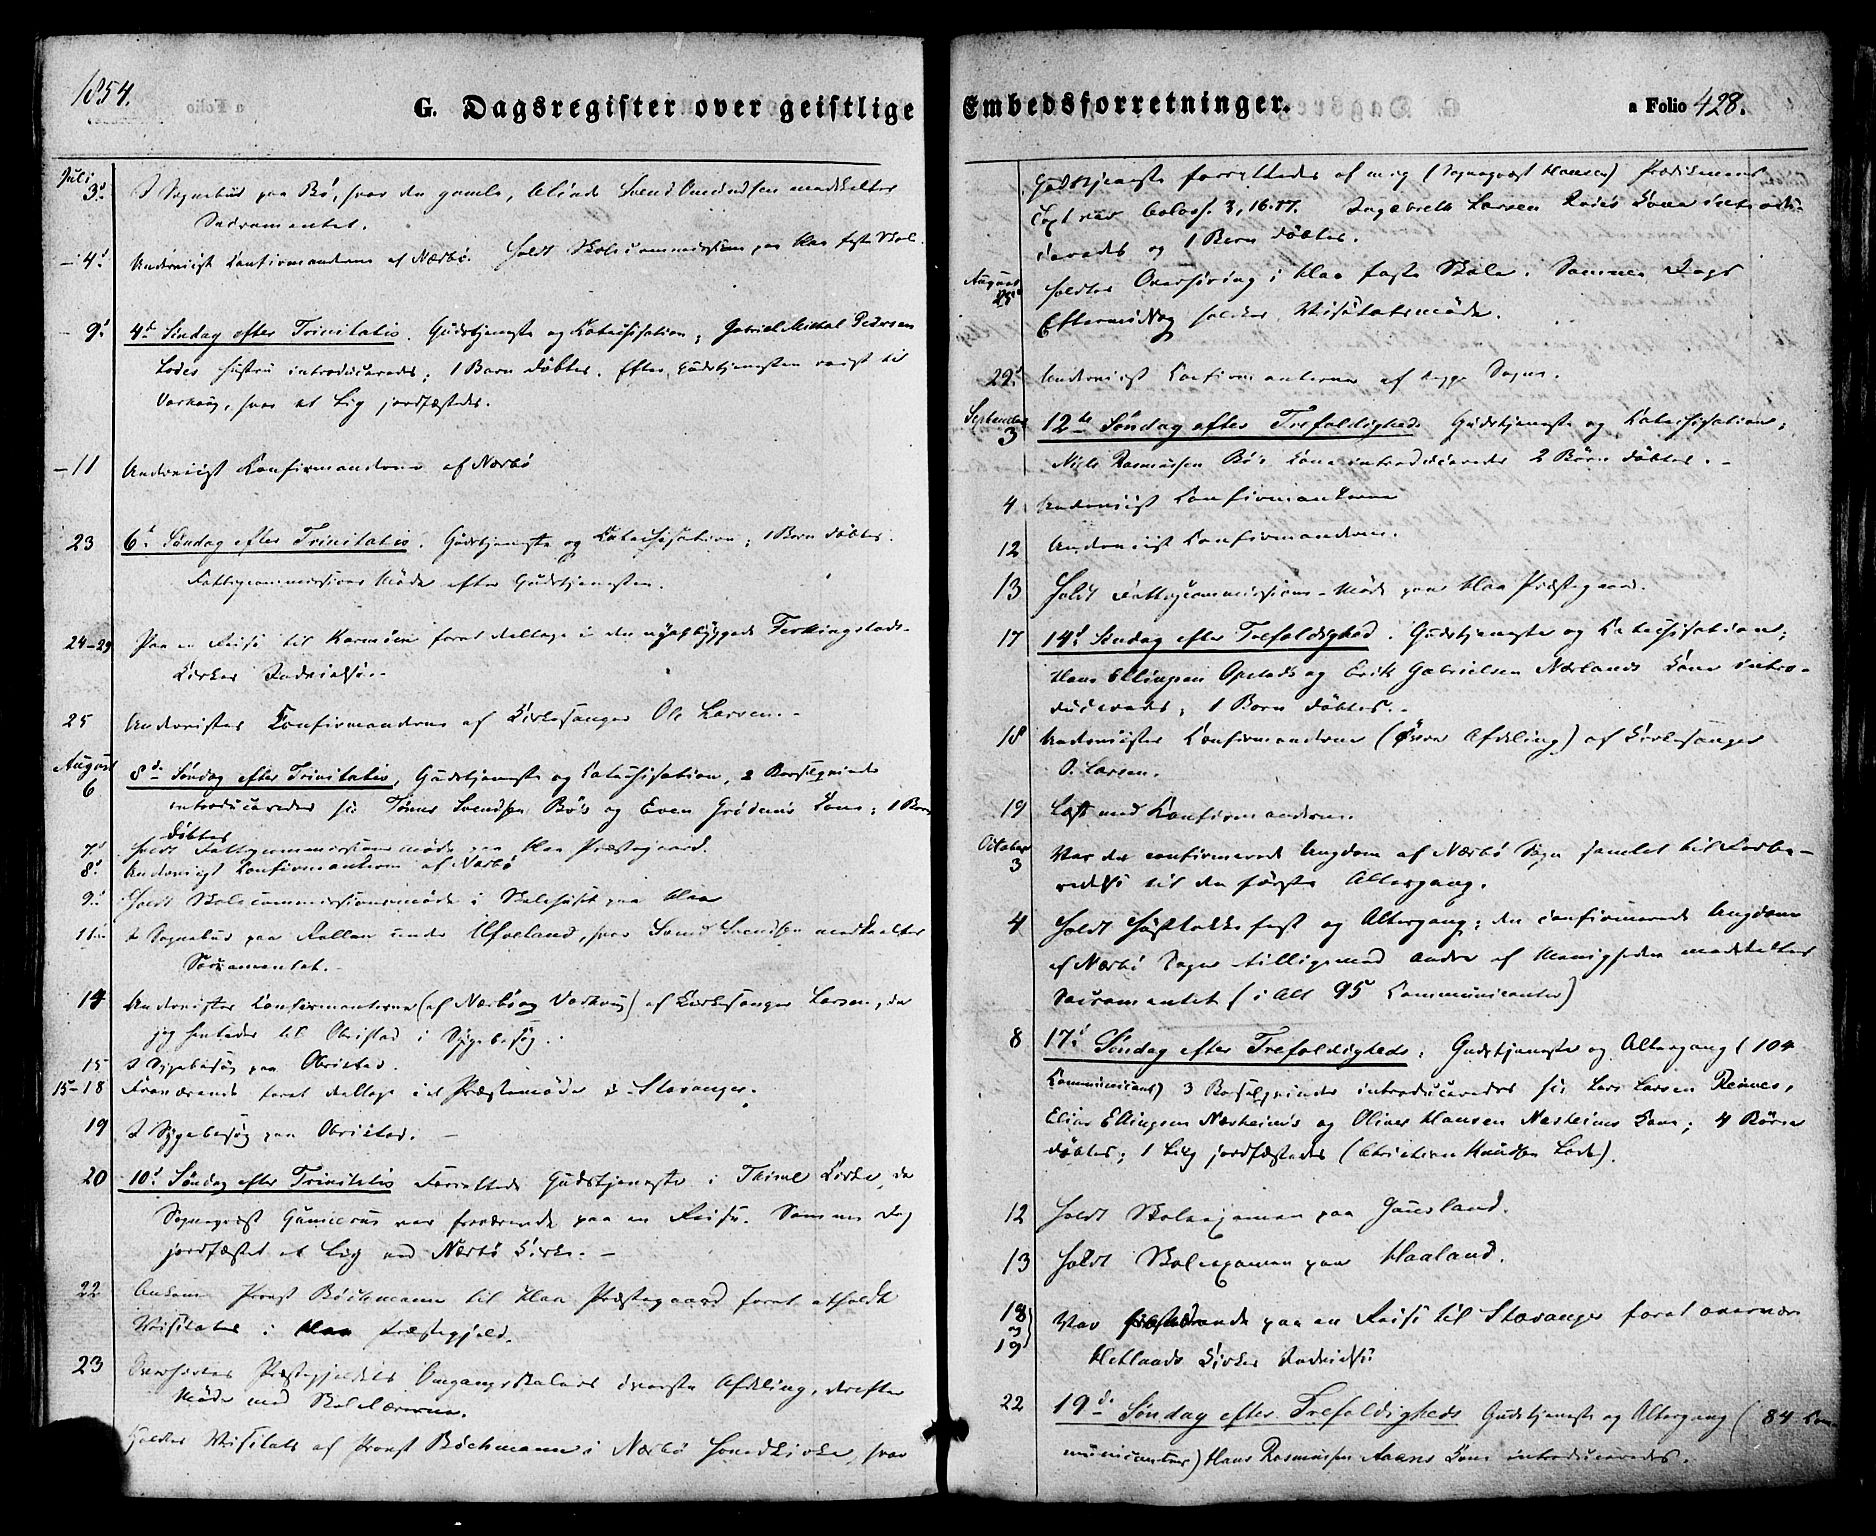 1854.
G. Dagsregister over geistlige Embedsforretninger. a Folio 428.
Juli
3d I Sognebud paa Bö, hvor den gamle, blinde Svend Omundsen modtog
Sacramentet.
- 4d Underviist Confirmanderne af Nærbö. Holdt Skolecommission paa Haa faste Skol.
- 9d 4de Söndag efter Trinitatis. Gudstjeneste og Catechisation; Gabriel Pedersen
Lodes Hustru introduceredes; 1 Barn döbtes. Efter Gudstjenesten reist til
Varhoug, hvor et Lig jordfæstedes.
- 11 Underviist Confirmanderne af Nærbö
23 6d Söndag efter Trinitatis. Gudstjeneste og Catechisation; 1 Barn döbtes.
Fattigcommissions Möde efter Gudstjenesten.
24-29 Paa en Reise til Karmöen forat deltage i den nyopbyggede Ferkingstads
Kirkes Indvielse.
25 Undervistes Confirmanderne af Kirkesanger Ole Larsen.
August
6 8de Söndag efter Trinitatis, Gudstjeneste og Catechisation, 2 Barselqvinder
introduceredes Tönnes Svendsen Bö's og Even Gröden's Kone; 1 Barn
döbtes
7d Holdt Fattigcommissionsmöde paa Haa Præstegaard.
8d Underviist Confirmanterne af Nærbö
9d Holdt Skolecommissionsmöde i Skolehuset paa Haa
11te I Sognebud paa under Ulveland, hvor Svend Svendsen modtog
Sacramentet.
14 Undervistes Confirmanterne (af Nærbö og Varhoug) af Kirkesanger Larsen, da
jeg hentedes til Obristad i Sygebesög.
15 I Sygebesög paa Obristad.
15-18 Fraværende forat deltage i et Præstemöde i Stavanger.
19 I Sygebesög paa Obristad.
20 10d Söndag efter Trinitatis Forrettede Gudstjeneste i Thime Kirke, da
Sognepræst Gunnerus var fraværende paa en Reise. Samme Dag
jordfæstet et Lig ved Nærbö Kirke.
22 Ankom Provst Böckmann til Haa Præstegaard forat afholdt
Visitats i Haa Præstegjeld.
23 Overhörtes Præstegjeldets Omgangsskolers överste Afdeling, derefter
Möde med Skolelærerne.
Holdtes Visitats af Provst Böckmann i Nærbö Hovedkirke, hvor
Gudstjeneste forrettedes af mig (Sognepræst Hansen) Prædikenens
Text var Coloss. 3, 16.17. Ingebreth Larsen Kone introdu-
ceredes og 1 Barn döbtes.
August
25 holdtes Overhöring i Haa faste Skole. Sammes Dags
Eftermiddag holdtes Visitatsmöde.
29d Underviist Confirmanterne af begge Sogne.
September
3 12te Söndag efter Trefoldighed. Gudstjeneste og Catechisation;
Niels Rasmussen Bö's Kone introduceredes 2 Börn döbtes.
4 Underviist Confirmanterne
12 Underviist Confirmanderne.
13 Holdt Fattigcommissions-Möde paa Haa Præstegaard.
17 14d Söndag efter Trefoldighed. Gudstjeneste og Catechisation;
Hans Ellingsen Opstads og Erik Gabrielsen Nærlands Kone intro-
duceredes; 1 Barn döbtes.
18 Undervistes Confirmanderne (övre Afdeling) af Kirkesanger
O. Larsen.
19 Læst med Confirmanderne.
October
3 Var den confirmerede Ungdom af Nærbö Sogn samlet til Forbe-
redelse til den förste Altergang.
4 Holdt Hösttakkefest og Altergang; den confirmerede Ungdom
af Nærbö Sogn tilligemed Andre af Menigheden modtog
Sacramentet (i Alt 95 Communicanter)
8 17d Söndag efter Trefoldigheds; Gudstjeneste og Altergang (104
Communicans) 3 Barselqvinder introduceredes Lars Larsen Reimes,
Elias Ellingsen Næsheim's og Oliver Hansen Nesheims Kone; 4 Börn
döbtes; 1 Lig jordfæstedes (Christian Knudsen Lode).
12 Holdt Skoleexamen paa Gausland.
13 Holdt Skoleexamen paa Haaland.
18
og
19 Var fraværende paa en Reise til Stavanger forat overvære
Hetlands Kirkes Indvielse
22 19d Söndag efter Trefoldigheds Gudstjeneste og Altergang (84 Com-
municanter) Hans Rasmussen Aanes Kone introduceredes.